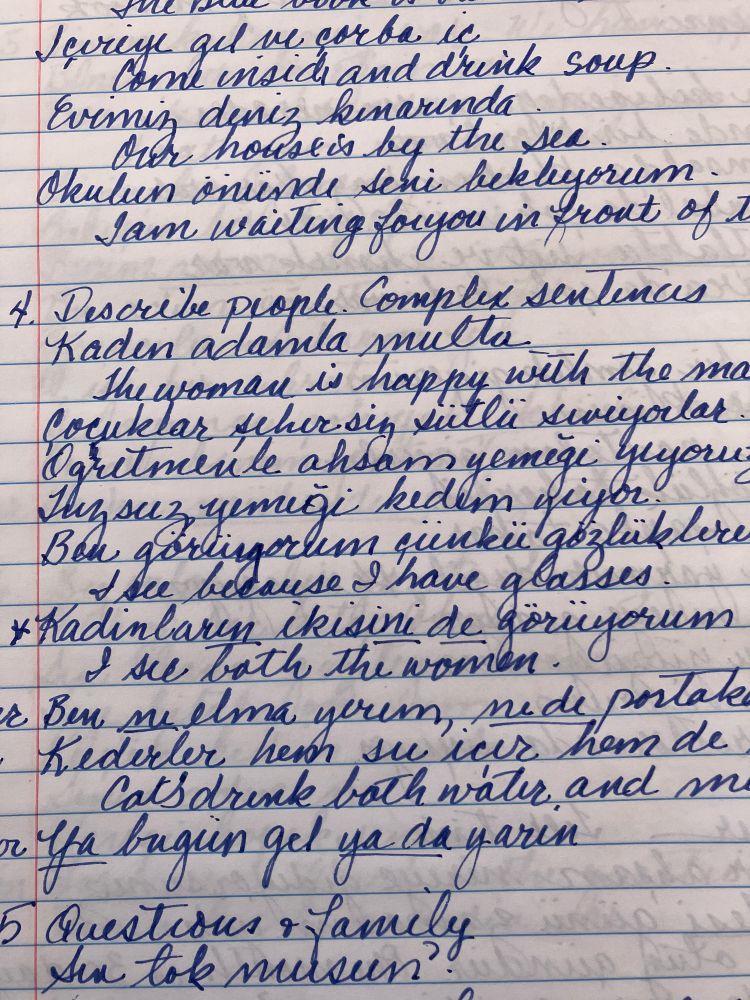 The Blue book is
Içeriye gel ve çorba iç
Come inside and drink soup.
Evimiz deniz kenarında.
Our house is by the sea.
Okulun önünde seni bekliyorum.
I am waiting for you in front of t
4. Describe people. Complex sentences
Kadın adamla mutlu
The woman is happy with the ma
Çocuklar şekersiz sütlü seviyorlar.
Öğretmenle akşam yemeği yiyoruz
Tuzsuz yemeği kedim yiyor.
Ben görüyorum çünkü gözlükleri
I see because I have glasses.
* Kadınların ikisini de görüyorum
I see both the women.
Ben ne elma yerim, ne de portaka
Kediler hem su içer hem de
Cats drink both water and m
or Ya bugün gel ya da yarın
5 Questions & family
Sen tok musun?